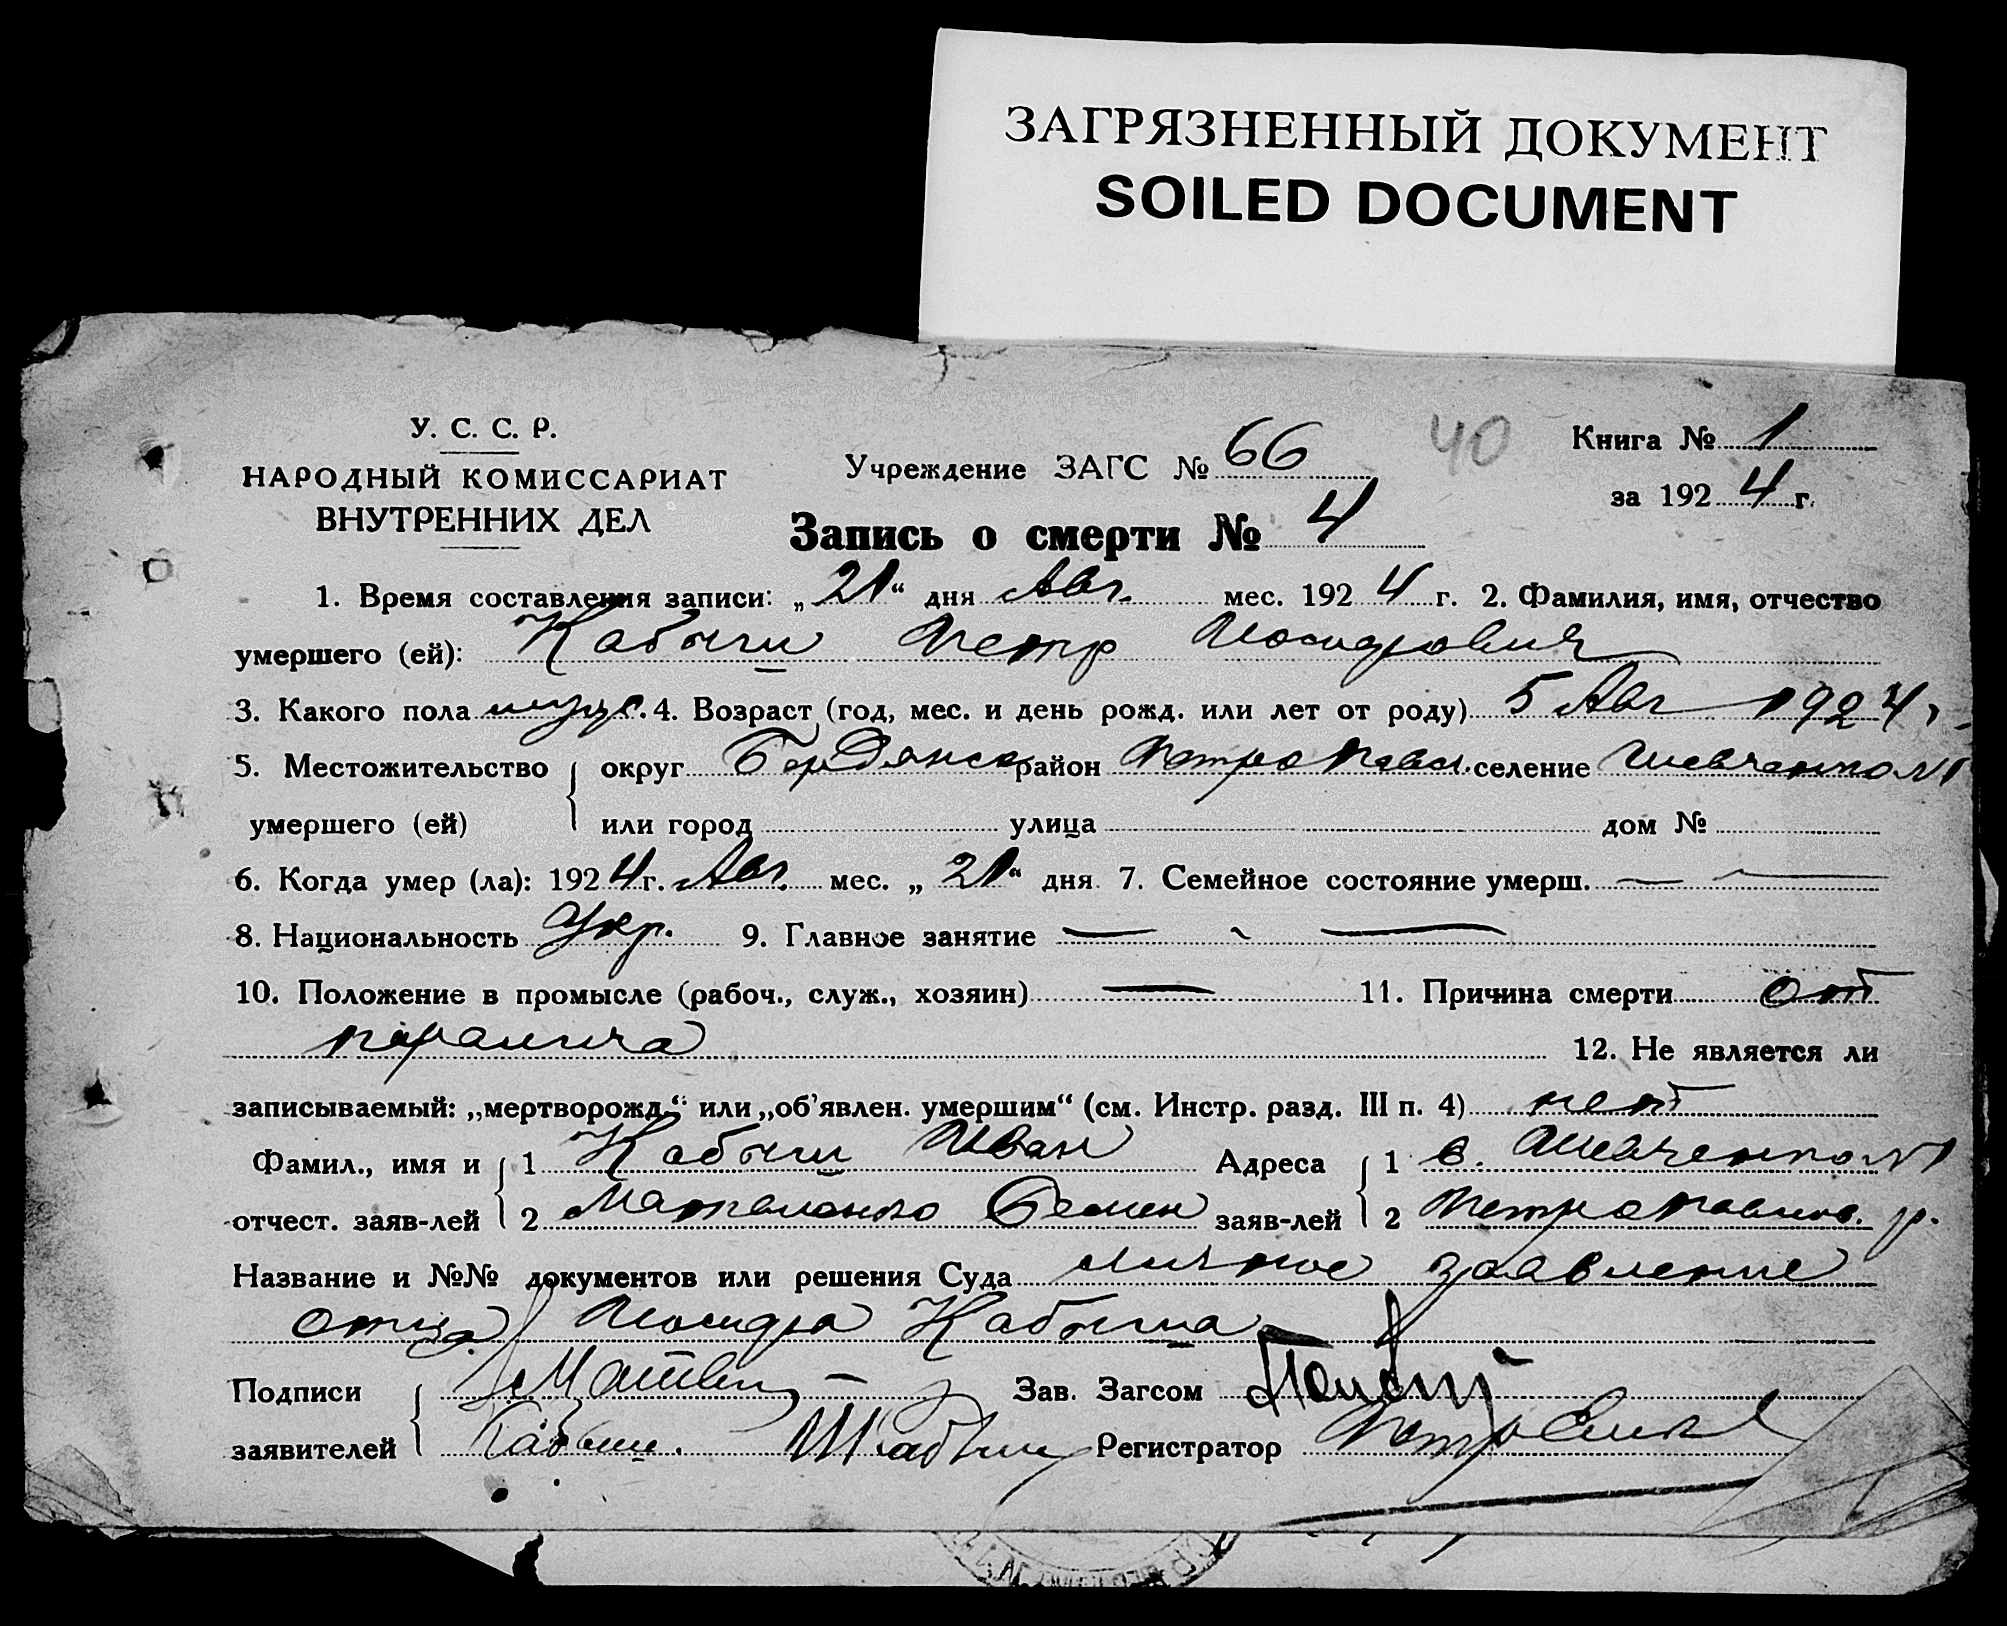 ЗАГРЯЗНЕННЫЙ ДОКУМЕНТ
SOILED DOCUMENT
У. С. С. Р.
НАРОДНЫЙ КОМИССАРИАТ
ВНУТРЕННИХ ДЕЛ
Учреждение ЗАГС № 66
40
Книга № 1
за 1924 г.
Запись о смерти № 4
1. Время составления записи: „21“ дня Авг. мес. 1924 г. 2. Фамилия, имя, отчество
умершего (ей): Кабыш Петр Исидрович
3. Какого пола муж. 4. Возраст (год, мес. и день рожд. или лет от роду) 5 Авг 1924,
5. Местожительство округ Бердянск район Петропавл. селение
умершего (ей) или город улица дом №
6. Когда умер (ла): 1924 г. Авг. мес. „21“ дня 7. Семейное состояние умерш. —
8. Национальность Укр. 9. Главное занятие — —
10. Положение в промысле (рабоч., служ., хозяин) — 11. Причина смерти от
паралича 12. Не является ли
записываемый: „мертворожд.“ или „об’явлен. умершим“ (см. Инстр. разд. III п. 4) нет
Фамил., имя и 1 Кабыш Иван Адреса 1 с.
отчест. заяв-лей 2 Семен заяв-лей 2 Петропавлов. р.
Название и №№ документов или решения Суда личное заявление
отца Исидра Кабыша
Подписи Зав. Загсом
заявителей Кабыш. Регистратор